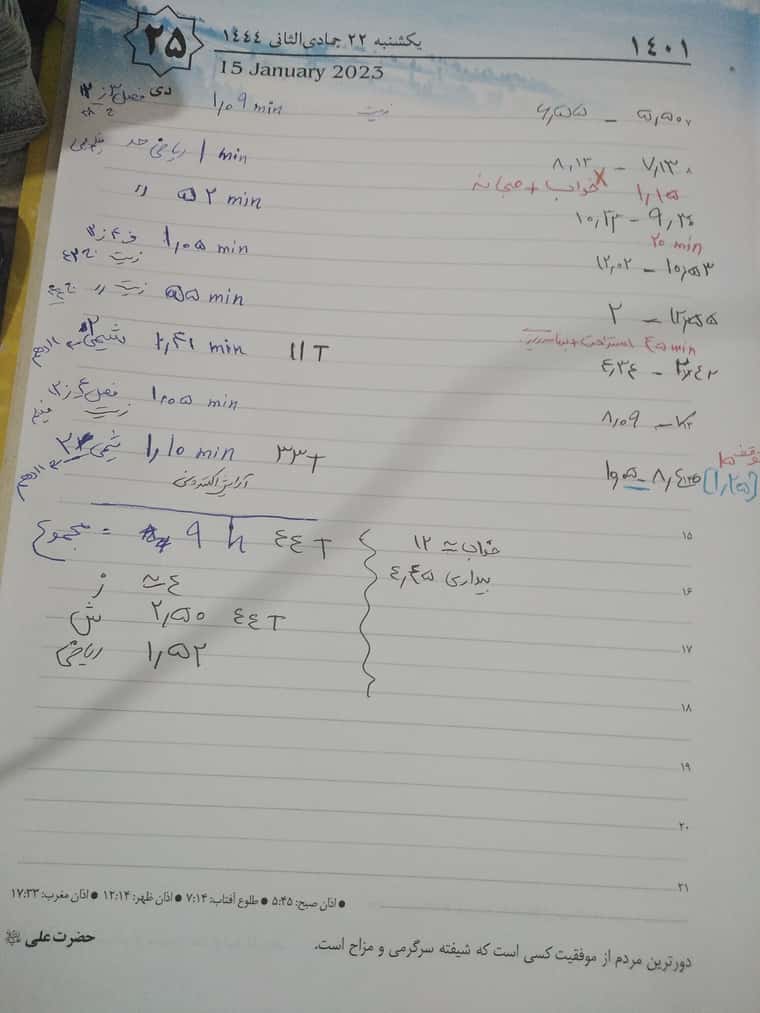 ۱۴۰۱ یکشنبه ۲۲ جمادی‌الثانی ۱۴۴۴ ۲۵
15 January 2023 دی
۵,۵۰ - ۶,۵۵ زیست ۱,۰۹ min فصل ۳ ز ۱۲
۷,۱۳ - ۸,۱۳ ۱ min ریاضی حد
۱,۱۵ خواب + صبحانه
۹,۲۰ - ۱۰,۲۳ ۵۲ min //
۲۰ min
۱۰,۵۳ - ۱۲,۰۲ ۱,۰۵ min زیست
۲ ۵۵ min زیست //
۴۵ min استراحت +
۲,۴۲ - ۴,۳۴ ۱۱ T ۱,۴۱ min شیمی ۲ یازدهم
۸,۰۹ ۱,۰۵ min فصل ۶ ز ۳ زیست
توقف
۳۳ T ۱,۱۰ min شیمی ۲ یازدهم
[۱,۲۵]
آرایش الکترونی
15
مجموع = ۹ h ۴۴ T
خواب ≈ ۱۲
بیداری ۴,۴۵
16
ز ≈ ۴
ش ۲,۵۰ ۴۴ T
17
ریاضی ۱,۵۲
18
19
20
21
● اذان صبح: ۵:۴۵ ● طلوع آفتاب: ۷:۱۴ ● اذان ظهر: ۱۲:۱۴ ● اذان مغرب: ۱۷:۳۳
دورترین مردم از موفقیت کسی است که شیفته سرگرمی و مزاح است.
حضرت علی